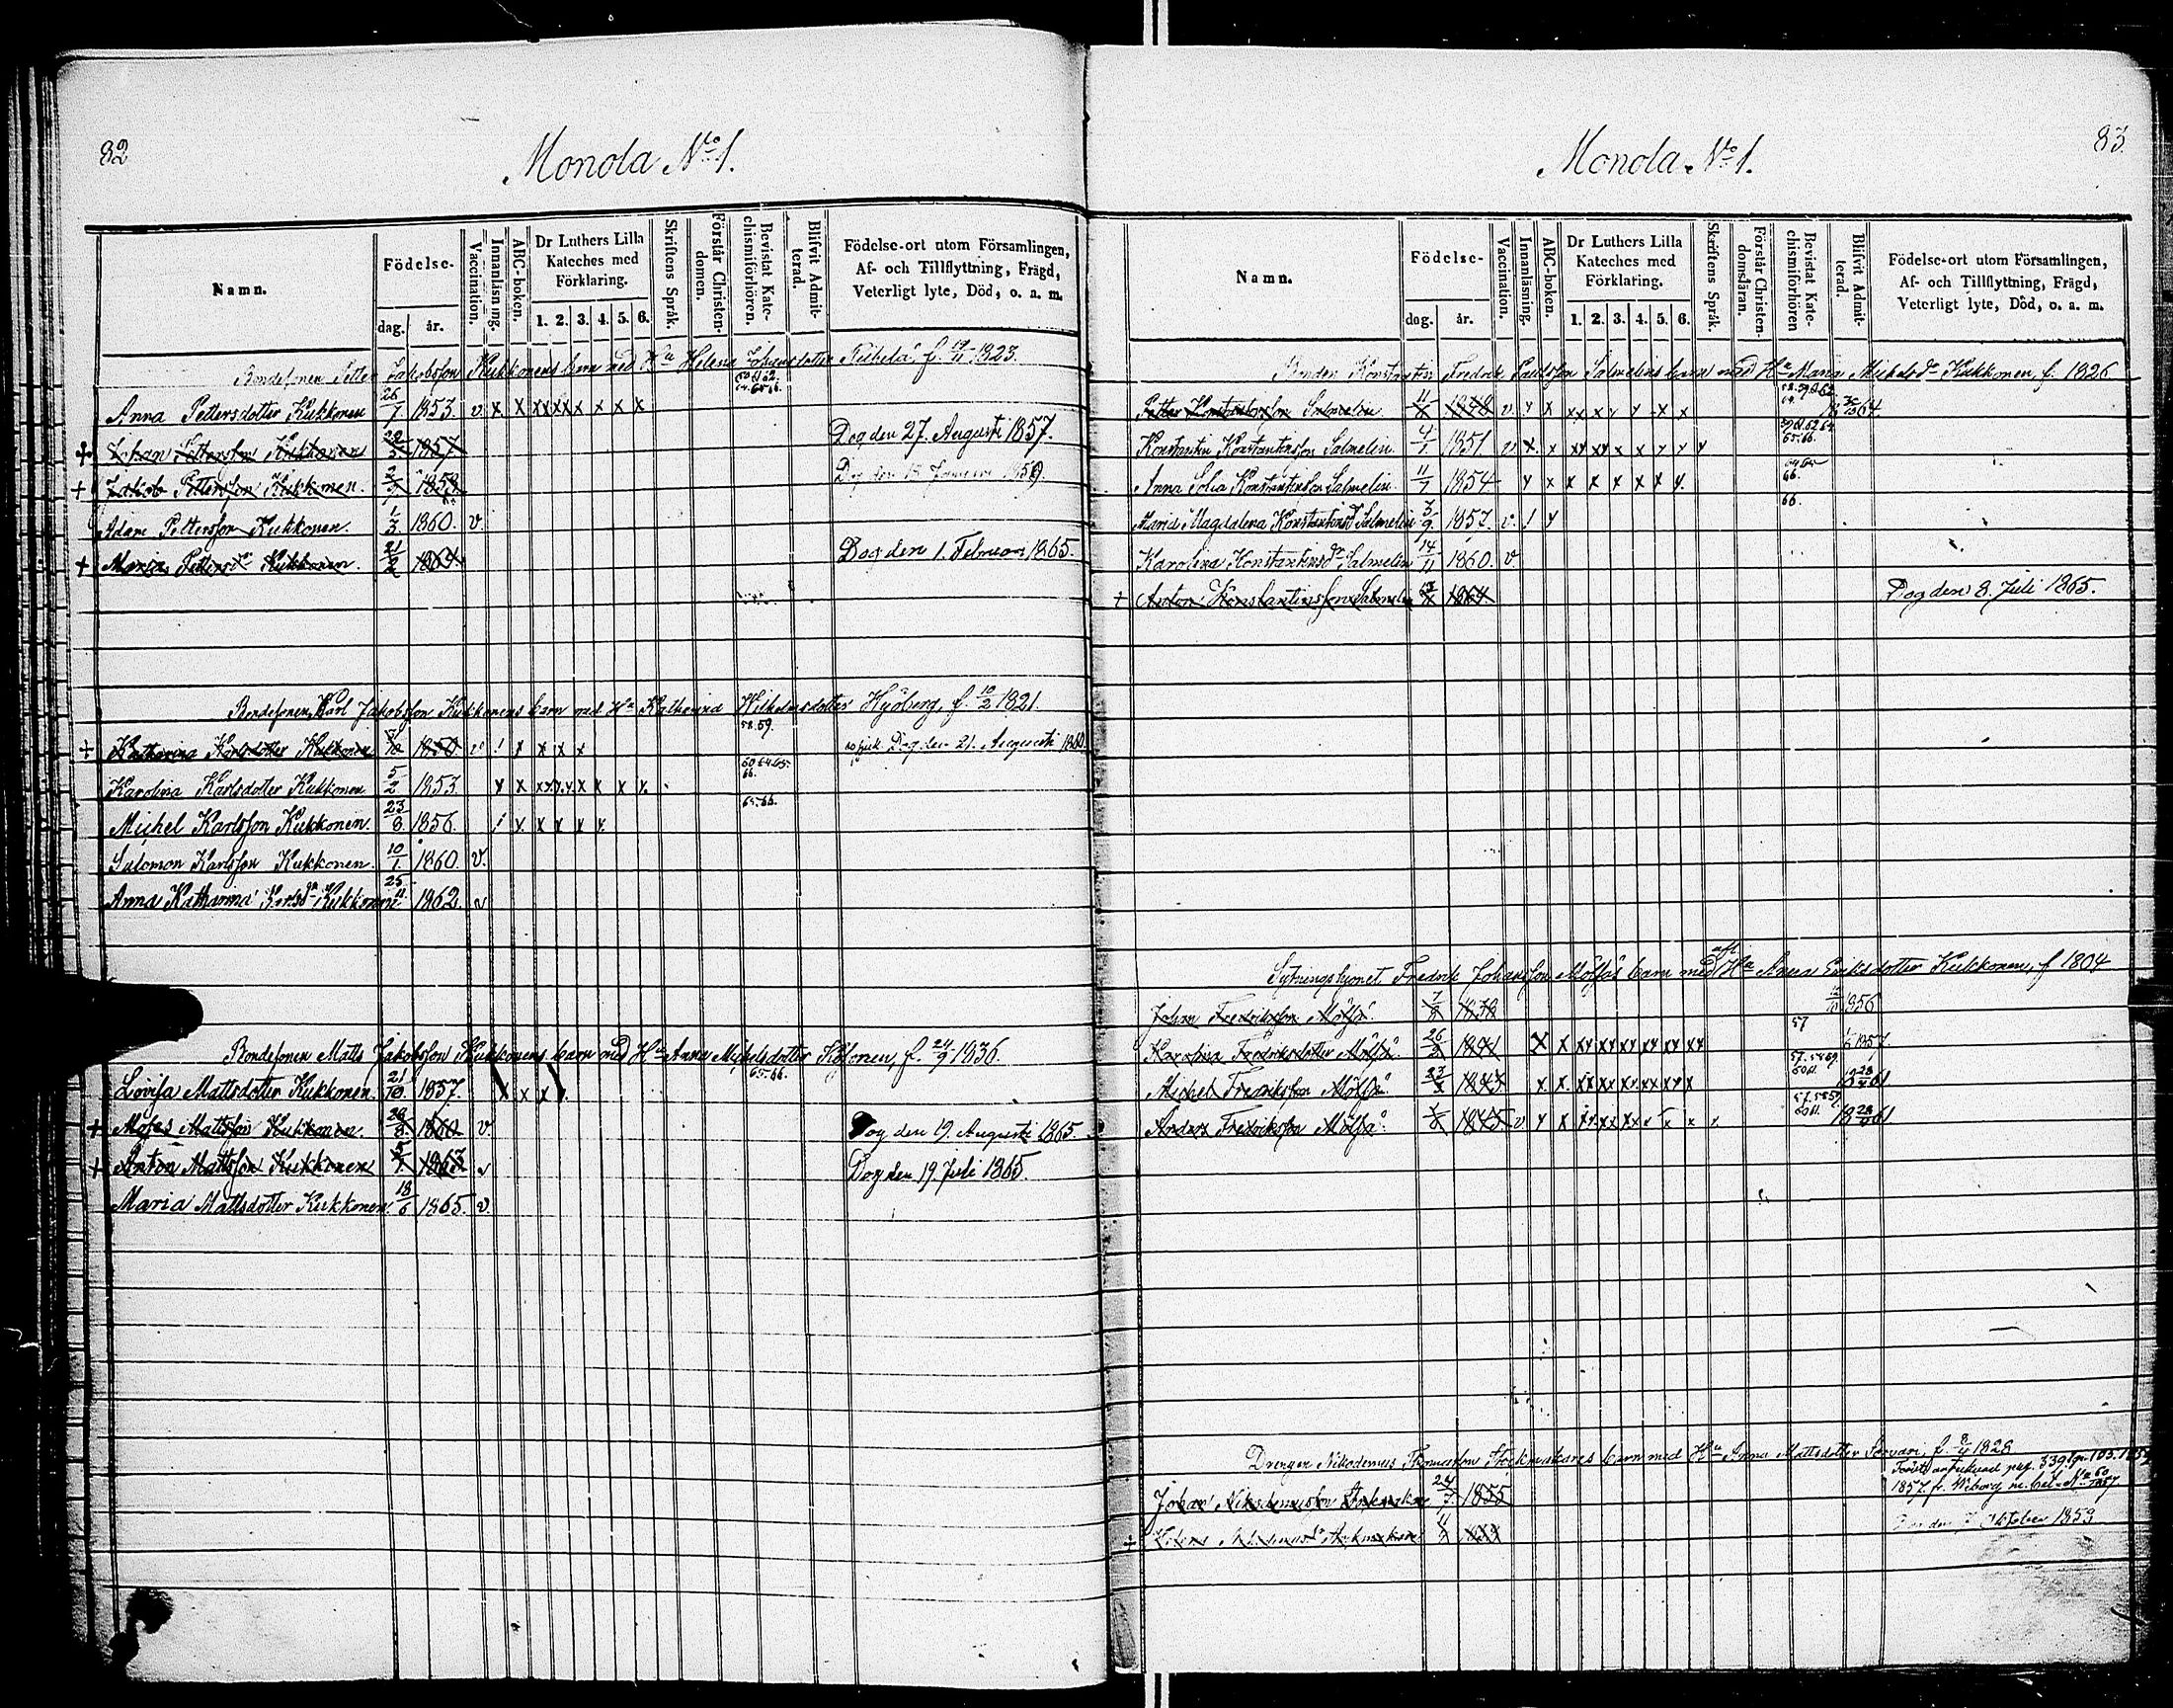 82
Monola No 1.
Namn.
Födelse-
dag. år.
Vaccination.
Innanläsning.
ABC-boken.
Dr Luthers Lilla Kateches med Förklaring.
1. 2. 3. 4. 5. 6.
Skriftens Språk.
Förstår Christendomen.
Bevistat Katechismiförhören.
Blifvit Admitterad.
Födelse-ort utom Församlingen,
Af- och Tillflyttning, Frägd,
Veterligt lyte, Död, o. a. m.
Bondesonen Petter Jakobsson Kukkonens barn med Hu Helena Johansdotter f. 19/11 1823.
Anna Pettersdotter Kukkonen 26/7 1853. v x x xx xx x x x x
+ Johan Pettersson Kukkonen 1857 Dog den 27. Augusti 1857.
+ Jakob Pettersson Kukkonen. 1858 Dog den Januari 1859.
Adam Pettersson Kukkonen. 1/3 1860. v.
+ Maria Pettersdr Kukkonen. 21/2 1864 Dog den 1. Februari 1865.
Bondesonen Karl Jakobsson Kukkonens barn med Hu Katharina Wilhelmsdotter Hyöberg, f. 10/2 1821.
58.59.
+ Katharina Karlsdotter Kukkonen 1850 v ! x x x x Dog den 21. Augusti 1860
60 64 65. 66.
Karolina Karlsdotter Kukkonen 5/2 1853.
65-66.
Michel Karlsson Kukkonen. 23/8 1856. ! x x x x x
Salomon Karlsson Kukkonen. 10/1 1860. v.
Anna Katharina Karlsdr Kukkonen 25/11 1862. v
Bondesonen Matts Jakobsson Kukkonens barn med Hu Anna Michelsdotter f. 24/9 1836.
65-66.
Lovisa Mattsdotter Kukkonen. 21/10 1857. x x x
+ Moses Mattsson Kukkonen. 28/8 1860 v. Dog den 19. Augusti 1865.
+ Anton Mattsson Kukkonen 1863 v Dog den 19. Juli 1865.
Maria Mattsdotter Kukkonen. 18/6 1865. v.
83.
Monola No 1.
Namn.
Födelse-
dag. år.
Vaccination.
Innanläsning.
ABC-boken.
Dr Luthers Lilla Kateches med Förklaring.
1. 2. 3. 4. 5. 6.
Skriftens Språk.
Förstår Christendomsläran.
Bevistat Katechismiförhören
Blifvit Admitterad.
Födelse-ort utom Församlingen,
Af- och Tillflyttning, Frägd,
Veterligt lyte, Död, o. a. m.
Bonden Konstantin Fredrik Salmelins barn med Hu Maria Michelsdr Kukkonen, f. 1826
Petter Konstantinsson Salmelin. 1848 v.
Konstantin Konstantinsson Salmelin. 4/1 1851 v
Anna Sofia Konstantinsson Salmelin. 11/7 1854
66.
Maria Magdalena Konstantinsdr Salmelin 3/9 1857. v. !
Karolina Konstantinsdr Salmelin 14/11 1860. v.
+ Anton Konstantinsson Salmelin 1864 Dog den 8. Juli 1865.
Sytningshjonet Fredrik Johansson Mölsäs barn med afl Hu Anna Eriksdotter Kukkonen, f 1804
Johan Fredriksson Mölsä. 1838 1856
57
Karolina Fredriksdotter Mölsä. 26 1841 1857
57.58 59. 60 61.
Michel Fredriksson Mölsä. 23 1843 61
57.58 59 60 61.
Anders Fredriksson Mölsä. 1845 v 61
Drengen Nikodemus Thomasson barn med Hu Anna Mattsdotter f. 8/4 1828
Johan Nikodemusson 24/7 1855 pag. 339 1857 fr. Wiborg m. bet. No 60 1857
+ Helena Nikodemusdr Oktober 1853